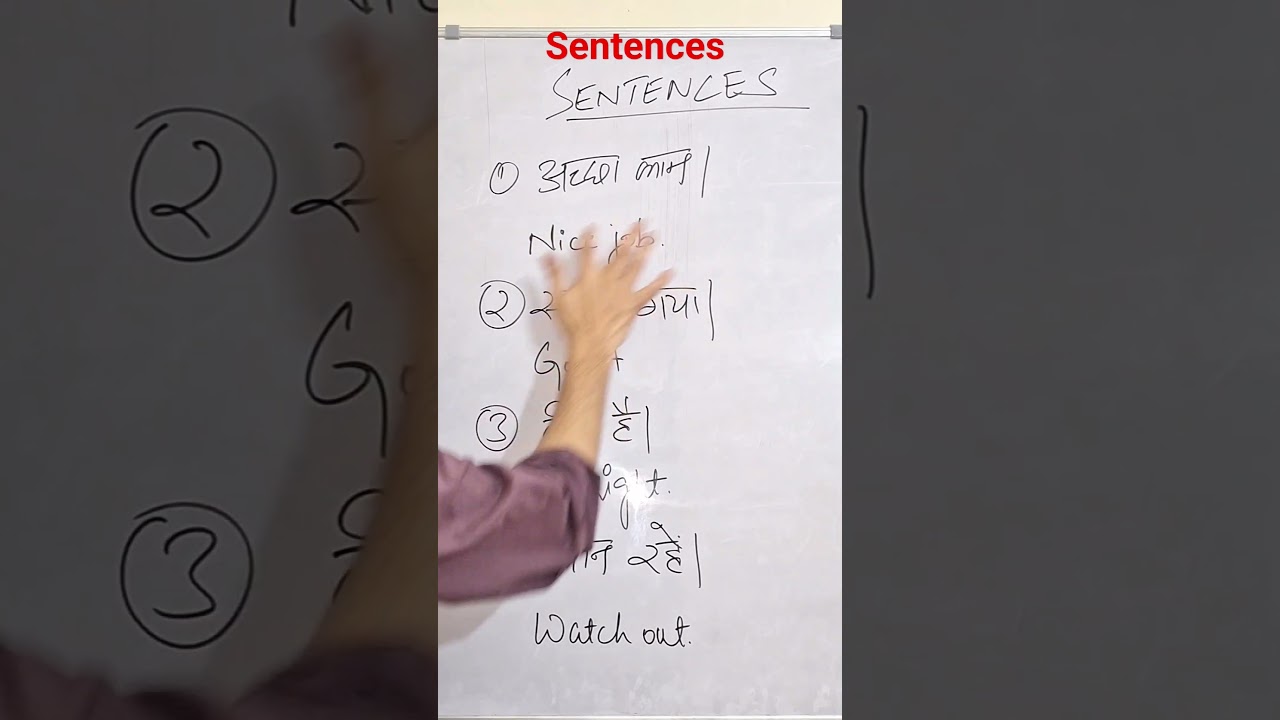 Sentences
SENTENCES
① अच्छा काम।
Nice job.
② गया।
③ है।
right.
रहें।
Watch out.